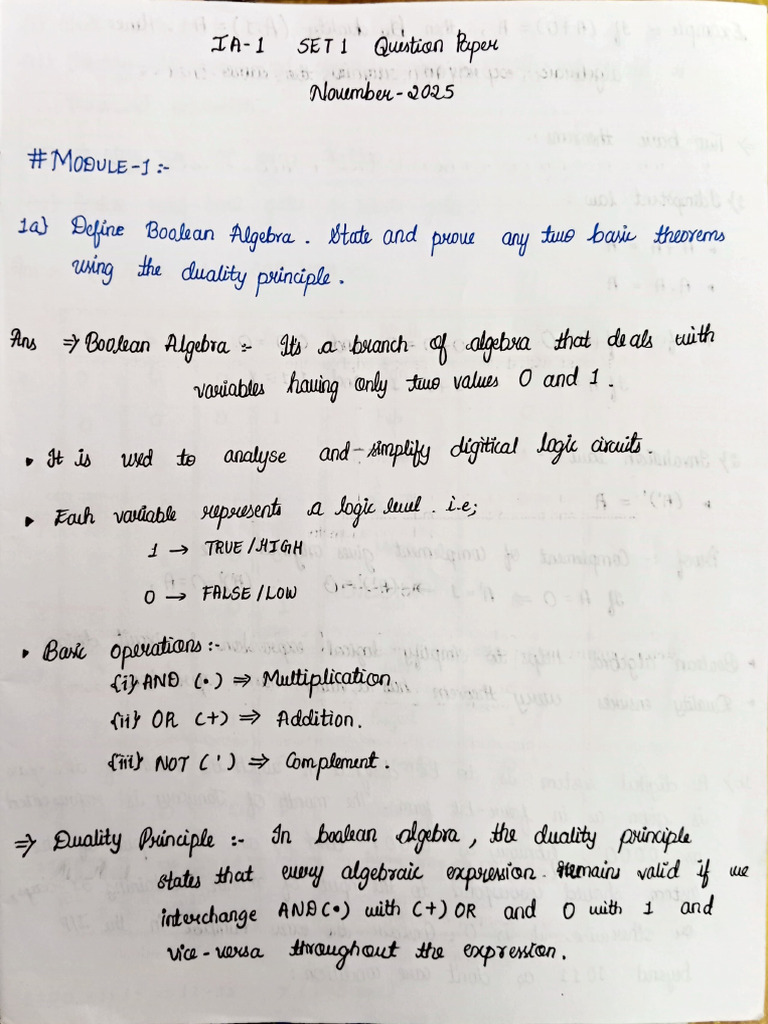 IA-1 SET 1 Question Paper
November-2025
#MODULE-1:-
1a} Define Boolean Algebra. State and prove any two basic theorems
using the duality principle.
Ans ⇒ Boolean Algebra :- It's a branch of algebra that deals with
variables having only two values 0 and 1.
• It is used to analyse and simplify digitical logic circuits.
• Each variable represents a logic level. i.e;
1 → TRUE/HIGH
0 → FALSE/LOW
• Basic operations:-
{i} AND (•) ⇒ Multiplication.
{ii} OR (+) ⇒ Addition.
{iii} NOT (') ⇒ Complement.
⇒ Duality Principle :- In boolean algebra, the duality principle
states that every algebraic expression remains valid if we
interchange AND(•) with (+) OR and 0 with 1 and
vice-versa throughout the expression.